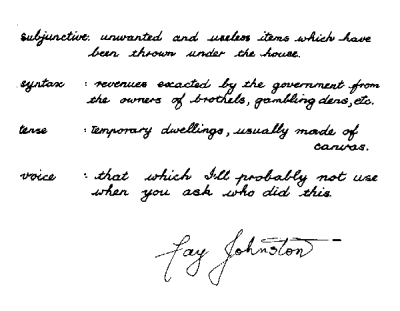 subjunctive: unwanted and useless items which have
been thrown under the house.
syntax : revenues exacted by the government from
the owners of brothels, gambling dens, etc.
tense : temporary dwellings, usually made of
canvas.
voice : that which I'll probably not use
when you ask who did this.
Fay Johnston